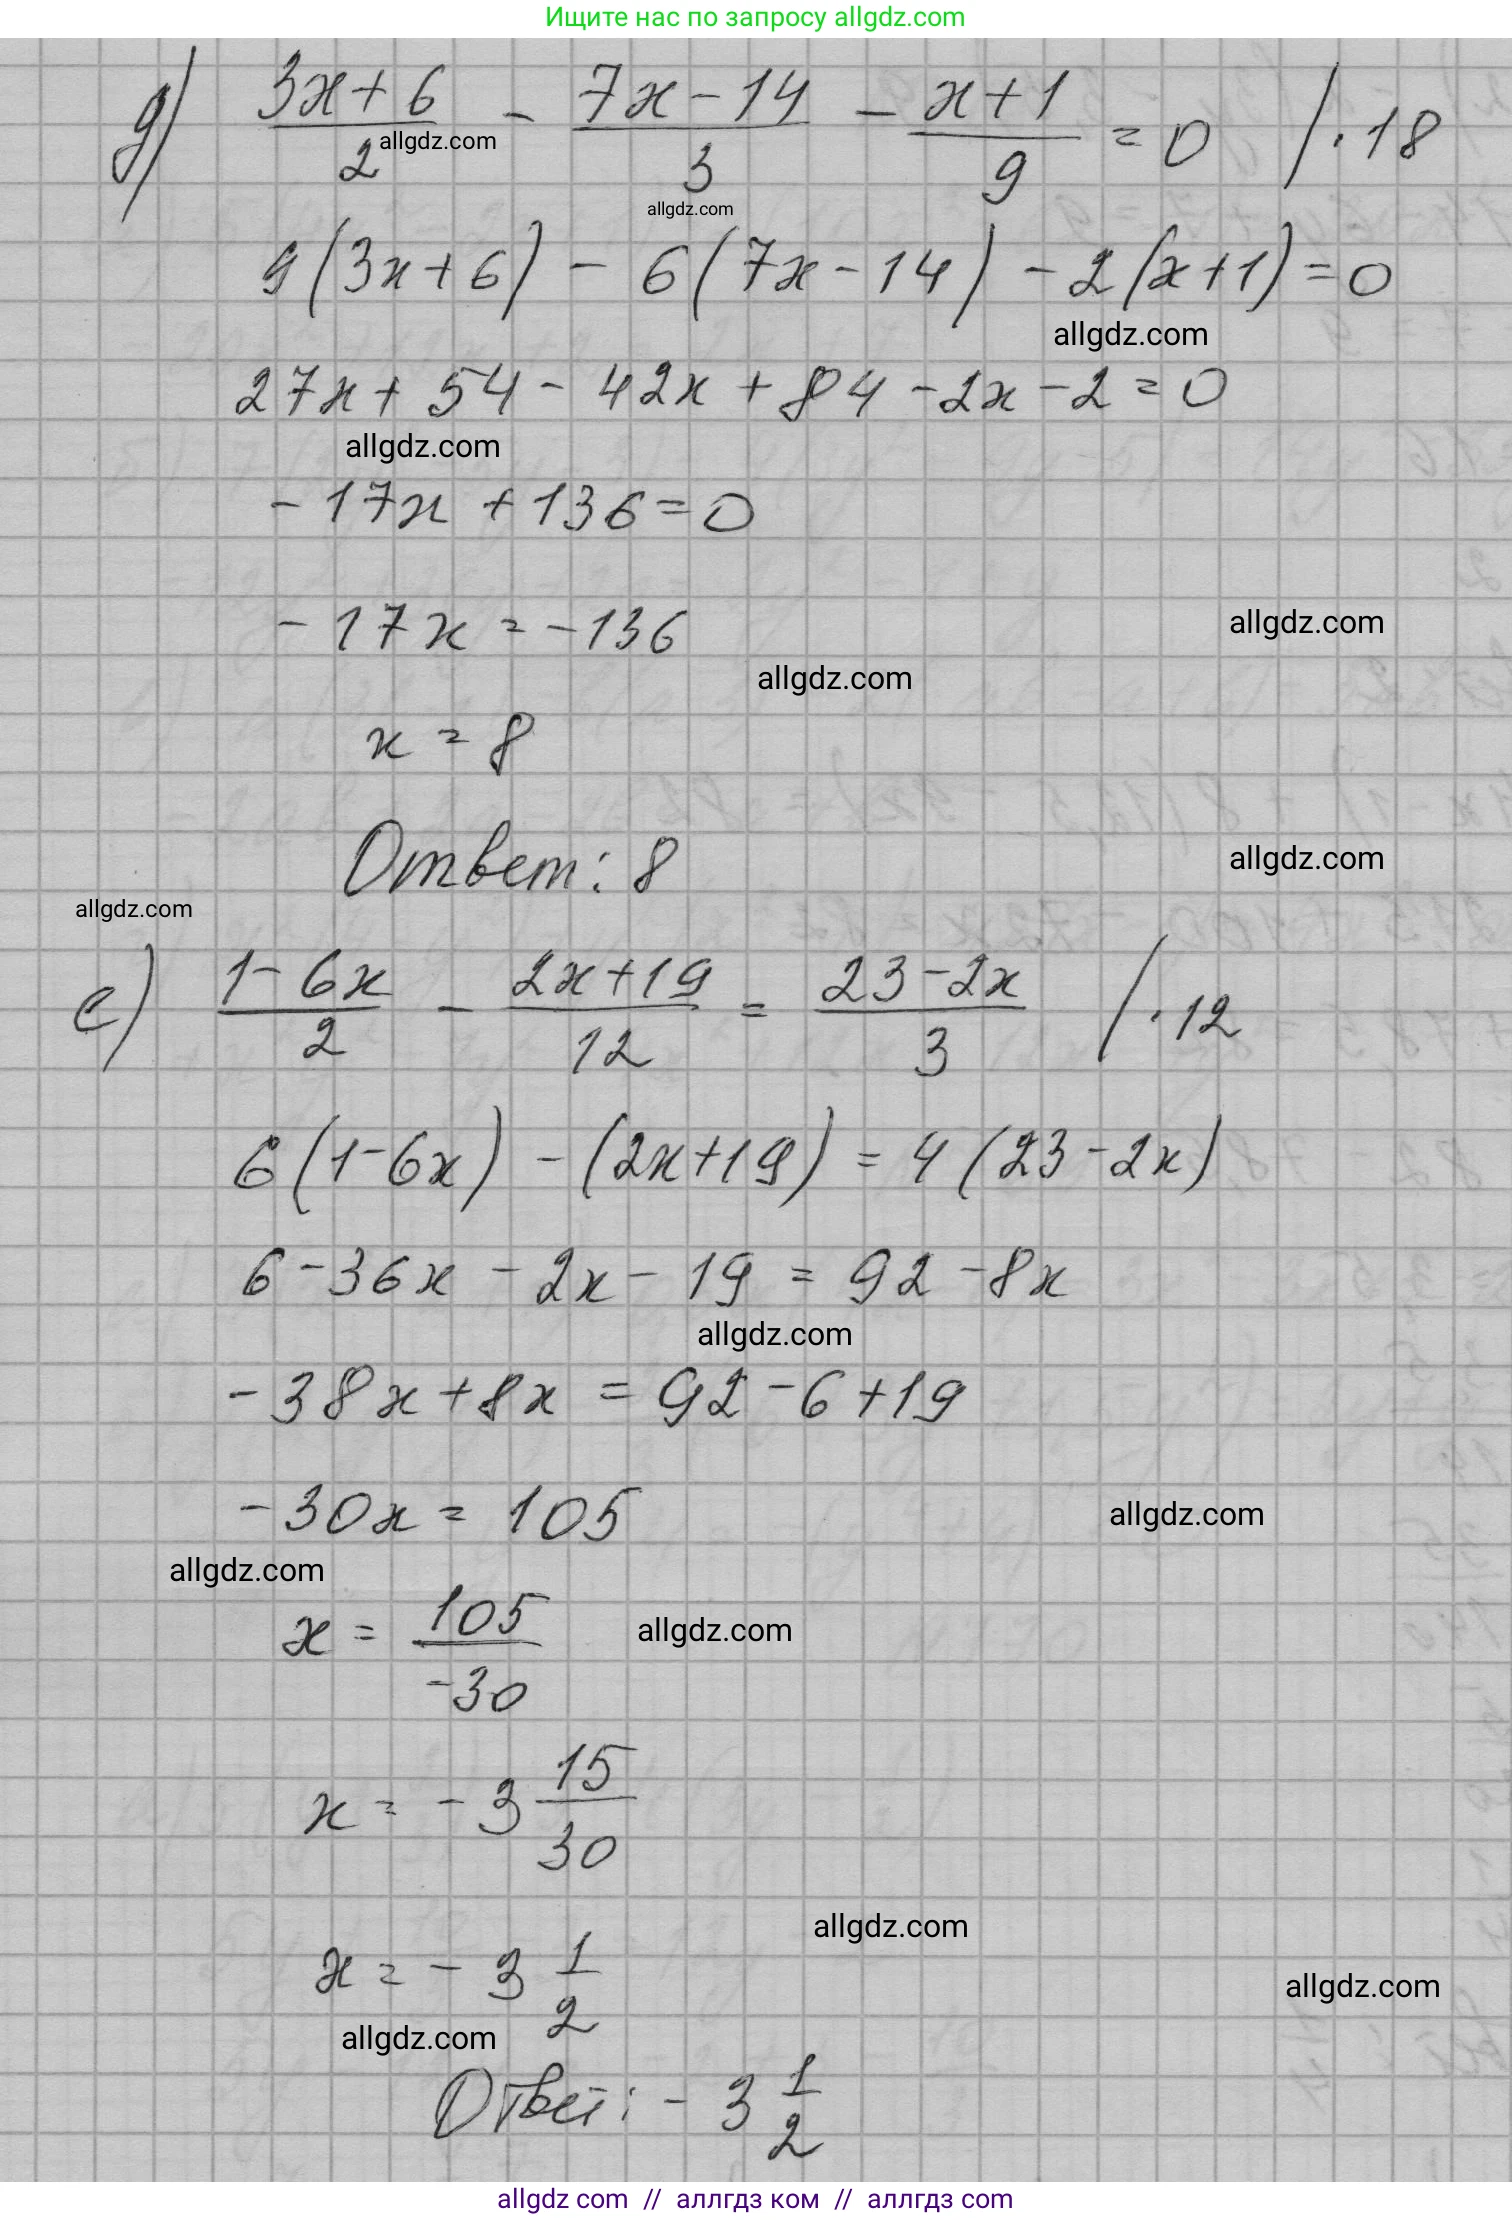 Ищите нас по запросу allgdz.com
д) (3x+6)/2 - (7x-14)/3 - (x+1)/9 = 0 /·18
allgdz.com
allgdz.com
9(3x+6) - 6(7x-14) - 2(x+1) = 0
allgdz.com
27x + 54 - 42x + 84 - 2x - 2 = 0
allgdz.com
-17x + 136 = 0
-17x = -136
allgdz.com
allgdz.com
x = 8
Ответ: 8
allgdz.com
allgdz.com
е) (1-6x)/2 - (2x+19)/12 = (23-2x)/3 /·12
6(1-6x) - (2x+19) = 4(23-2x)
6-36x - 2x - 19 = 92 - 8x
allgdz.com
-38x + 8x = 92 - 6 + 19
-30x = 105
allgdz.com
allgdz.com
x = 105/-30
allgdz.com
x = -3 15/30
allgdz.com
x = -3 1/2
allgdz.com
allgdz.com
Ответ: -3 1/2
allgdz.com // аллгдз ком // аллгдз.com